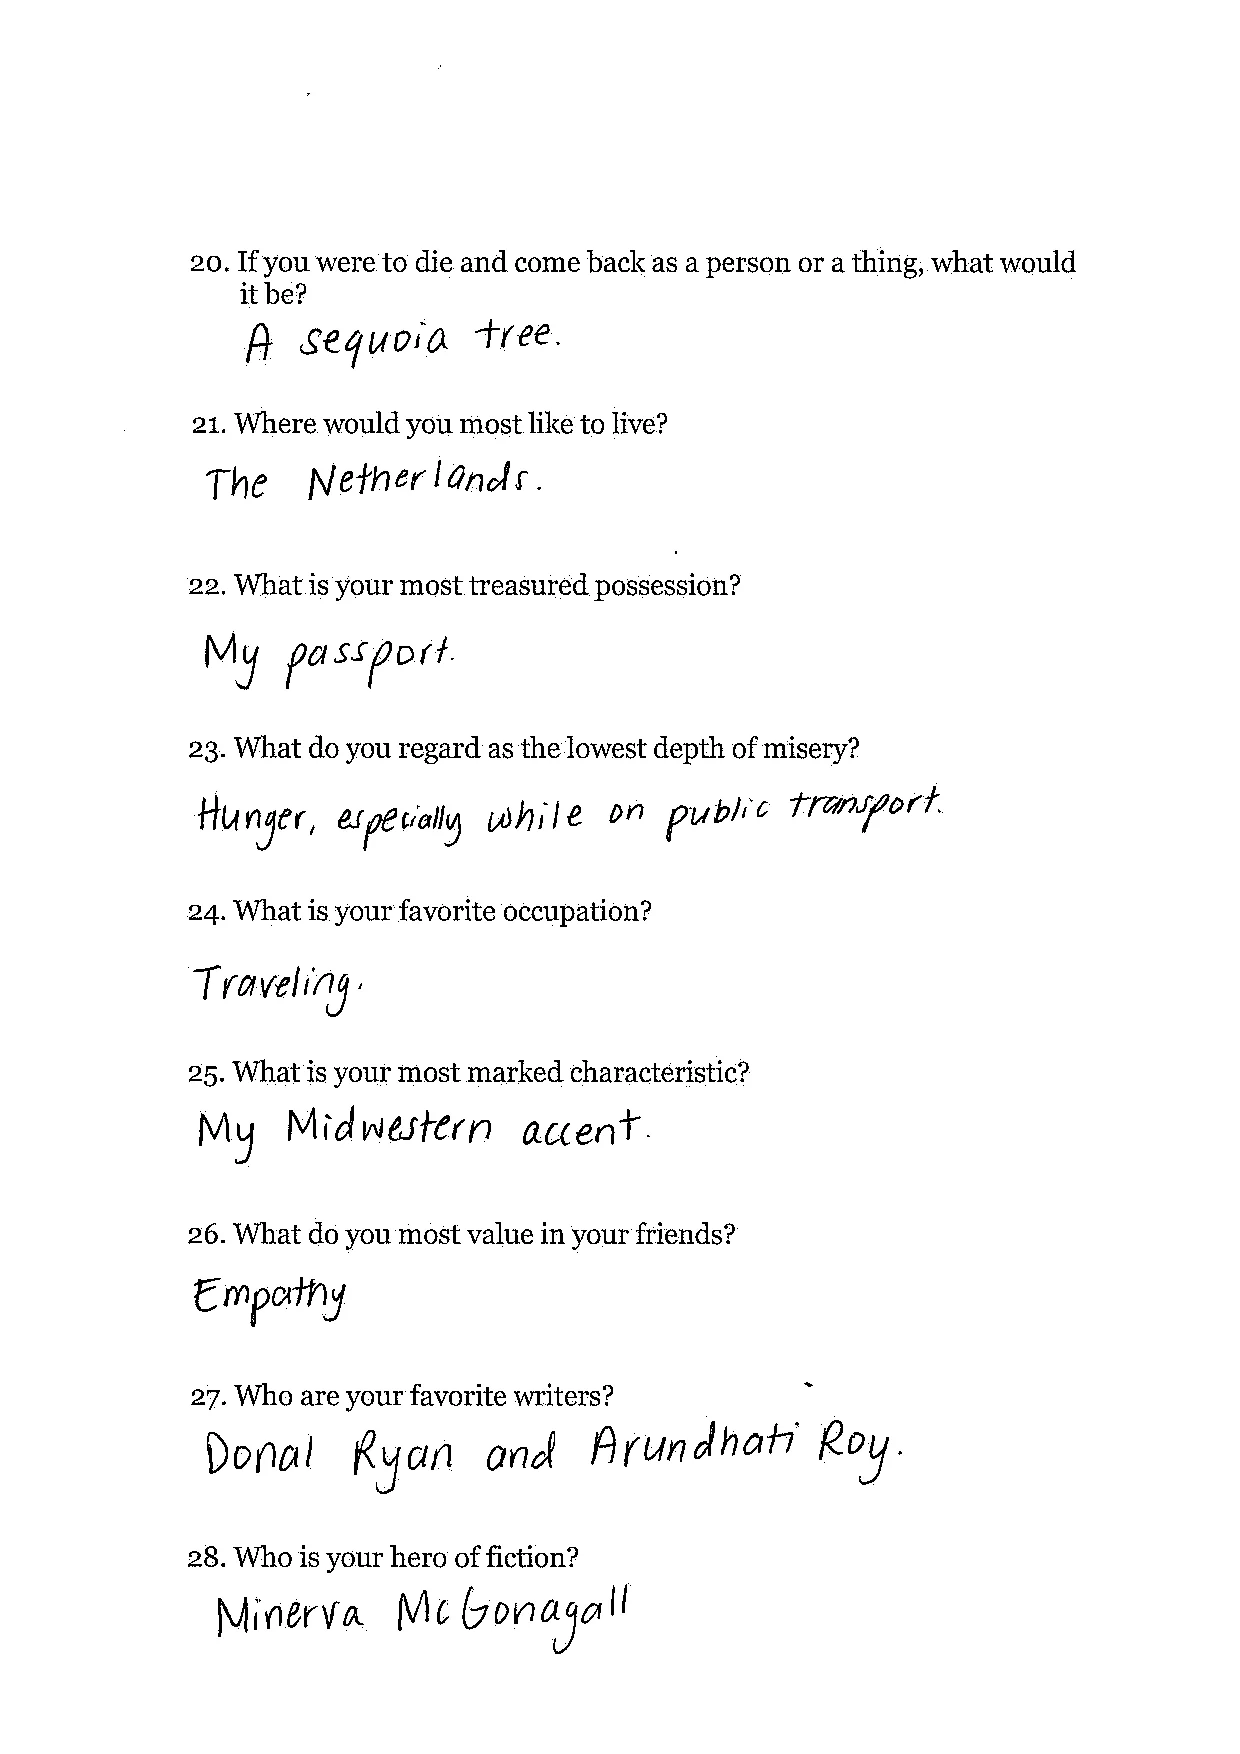 20. If you were to die and come back as a person or a thing, what would
it be?
A sequoia tree.
21. Where would you most like to live?
The Netherlands.
22. What is your most treasured possession?
My passport.
23. What do you regard as the lowest depth of misery?
Hunger, especially while on public transport.
24. What is your favorite occupation?
Traveling.
25. What is your most marked characteristic?
My Midwestern accent.
26. What do you most value in your friends?
Empathy
27. Who are your favorite writers?
Donal Ryan and Arundhati Roy.
28. Who is your hero of fiction?
Minerva McGonagall